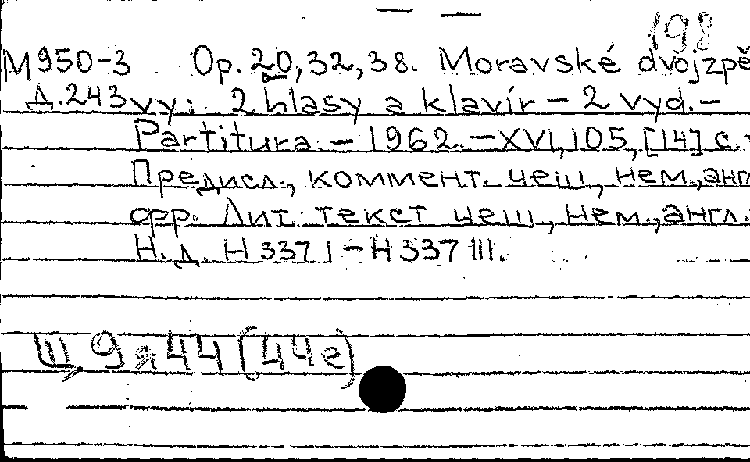 198
М950-3 Op. 20, 32, 38. Moravské dvojzpě
Д.243 vy: 2 hlasy a klavír – 2 vyd. –
Partitura. – 1962. – XVI, 105, [14] с.
Предисл., коммент. чеш., нем., анг
фр. Лит. текст чеш., нем., англ.
Н.д. H 337 I – H 337 III.
Щ 9 я 44 (44е)